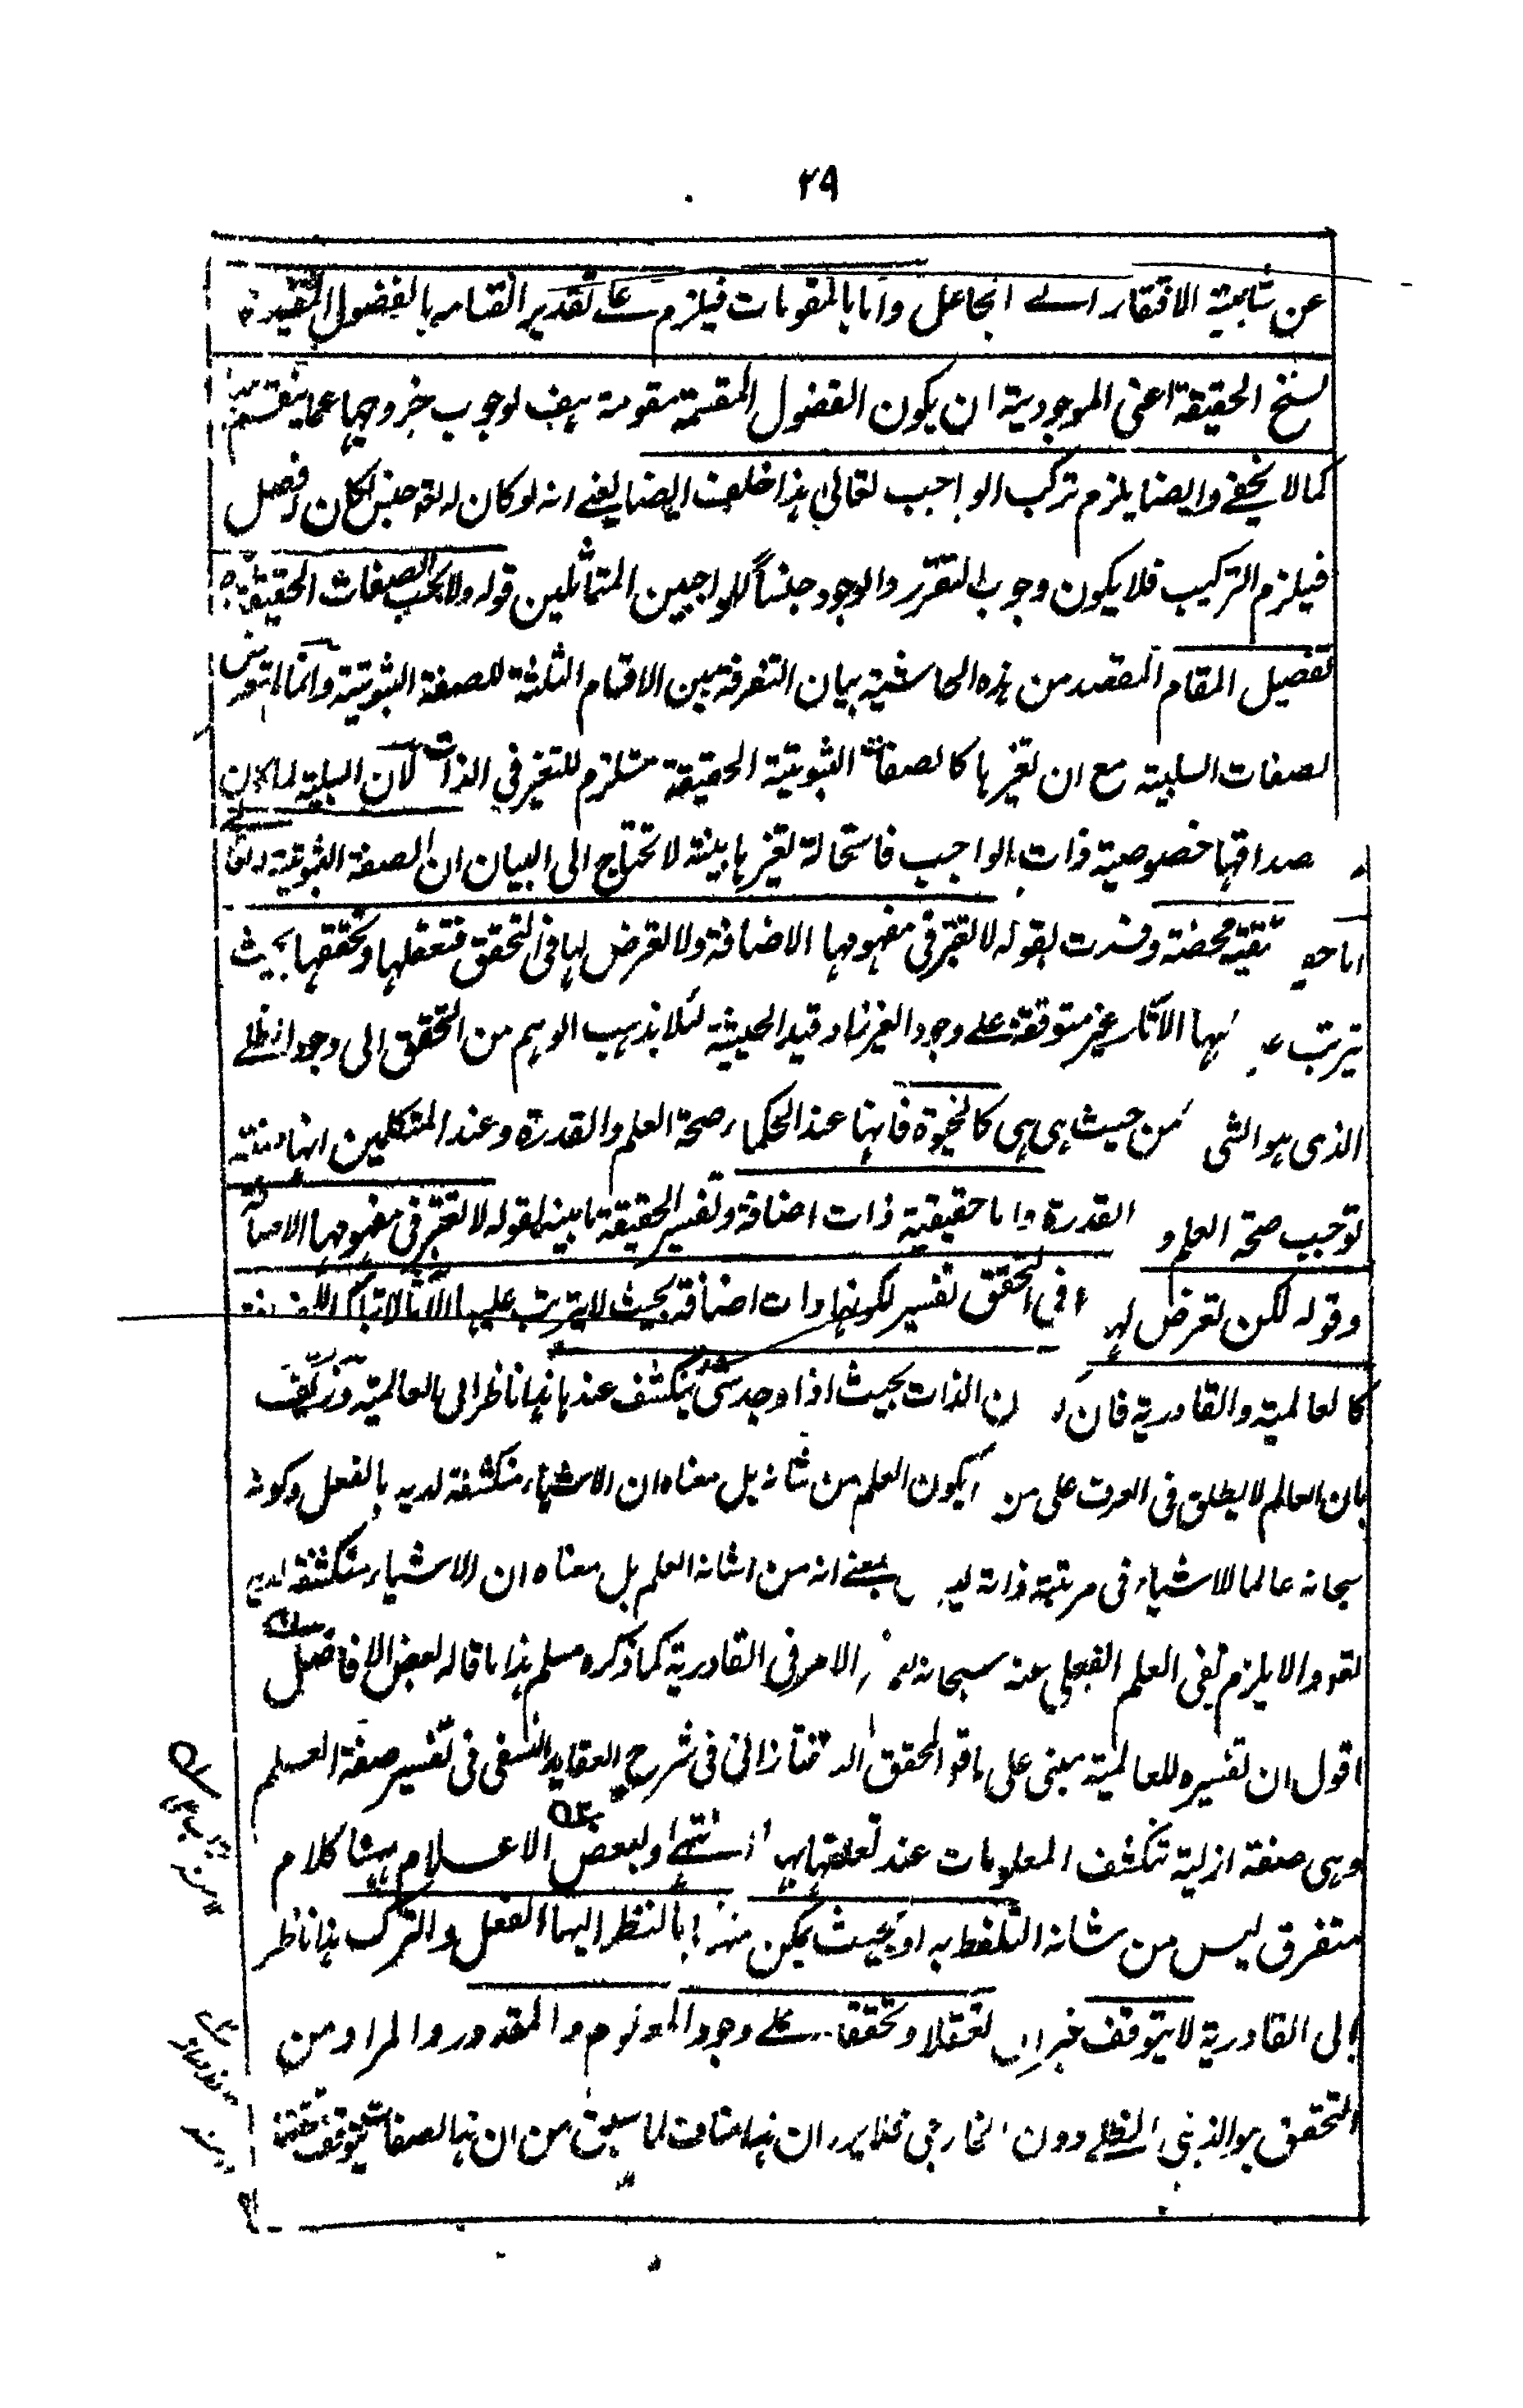 ٢٩
عن شابعية الافتقار الے الجاعل واما بالمقومات فيلزم علے تقدير القسامه بالفصول المفيدة
لسنخ الحقيقة اعنى الموجودية ان يكون الفصول المقسمة مقومة ہف لوجوب خروجها عما ينقسم
كما لا يخفى وايضا يلزم تركب الواجب تعالى هذا خلف ايضا يعنے انه لو كان له تع جنس لكان له فصل
فيلزم التركيب فلا يكون وجوب التقرر والوجود جنساً للواجبين المتماثلين قوله ولا يجب الصفات الحقيقية
تفصيل المقام المقصد من هذه الحاشية بيان التفرقة بين الاقسام الثلثة للصفة الثبوتية وانما لم يتعرض
لصفات السلبية مع ان تغيرها كالصفات الثبوتية الحقيقة مستلزم للتغير فى الذات لان السلبية لما كان
صداقها خصوصية ذات الواجب فاستحالة تغيرها بينة لا تحتاج الى البيان ان الصفة الثبوتية
اما حقيقية محضة وفسرت بقوله لا يعتبر فى مفهومها الاضافة ولا تعرض لها فى التحقق فتعقلها وتحققها بحيث
يترتب عليها الآثار غير متوقفة علے وجود الغير زاد قيد الحيثية لئلا يذهب الوهم من التحقق الى وجود الظلے
الذى هو الشى من حيث هى هى كالحيوة فانها عند الحكماء صحة العلم والقدرة وعند المتكلمين انها صفة
توجب صحة العلم و القدرة واما حقيقية ذات اضافة وتفسير الحقيقة ما بينه بقوله لا تعتبر فى مفهومها الاضافة
وقوله لكن تعرض لها فى التحقق تفسير لكونها ذات اضافة بحيث لا يترتب عليها الآثار الا بتلك
كالعالمية والقادرية فان الذات بحيث اذا وجد شئ ينكشف عندها هذا ناظر الى العالمية وزيف
بان العالم لا يطلق فى العرف على من يكون العلم من شانه بل معناه ان الاشياء منكشفة لديه بالفعل وكونه
سبحانه عالما للاشياء فى مرتبة ذاته ليس بمعنے انه من شانه العلم بل معناه ان الاشياء منكشفة لديه
والا يلزم نفى العلم الفعلى عنه سبحانه الامر فى القادرية كما ذكره مسلم هذا ما قاله بعض الافاضل
اقول ان تفسيره للعالمية مبنى على ما قو المحقق التفتازانى فى شرح العقايد النسفى فى تفسير صفة العلم
وهى صفة ازلية تنكشف المعلومات عند تعلقها بها انتهى ولبعض الاعلام ههنا كلام
متفرق ليس من شانه التلفظ به او بحيث يمكن منها بالنظر اليها الفعل والترك هذا ناظر
الى القادرية لا يتوقف تعقلا وتحققا علے وجود المعلوم والمقدور والمراد من
التحقق هو الذهنى الظلے دون الخارجى فلا يرد ان هذا مناف لما سبق من ان هذه الصفات يتوقف